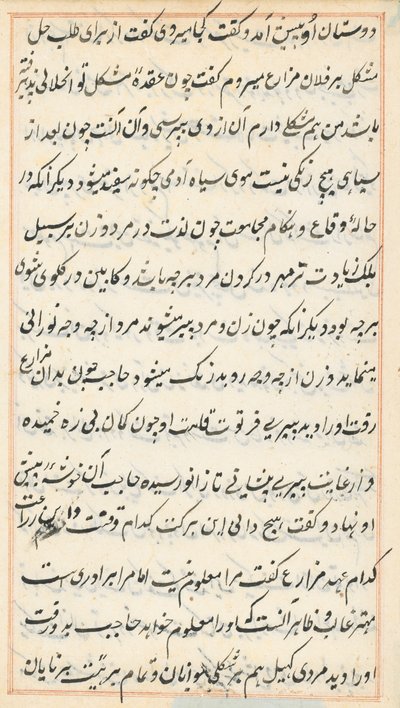 دوستان او پیش آمد و گفت کجا میروی گفت از برای طلب حل
مشکل بر فلان مزارع میروم گفت چون عقدهٔ مشکل تو انحلالی پذیرفته
باشد من هم مشکلی دارم آن از وی بپرسی و آن آنست چون بعد از
سیاهی هیچ رنگی نیست موی سیاه آدمی چگونه سفید میشود دیگر آنکه در
حالهٔ وقاع و هنگام مجامعت چون لذت در مرد و زن بر سبیل
زیادت تر مهر در گردن مرد بر چه باشد و کابین در گلوی شوی
بر چه بود دیگر آنکه چون زن و مرد پیر میشوند مرد از چه وجه نورانی
مینماید و زن از چه وجه رو بد رنگ میشود حاجب چون بدان مزارع
رفت او را دید پیری فرتوت قامت او چون کمان بی زه خمیده
و از غایت پیری تا زانو رسیده حاجب آن خوشه را پیش
او نهاد و گفت هیچ دانی این برکت کدام وقتست و این زراعت
کدام عهد مزارع گفت مرا معلوم نیست اما مرا برادری است
مهتر غالب و ظاهر آنست که او را معلوم خواهد حاجب بدو رفت
او را دید مردی کهل هم بر شکل جوانان و تمام بر هیئت برنایان